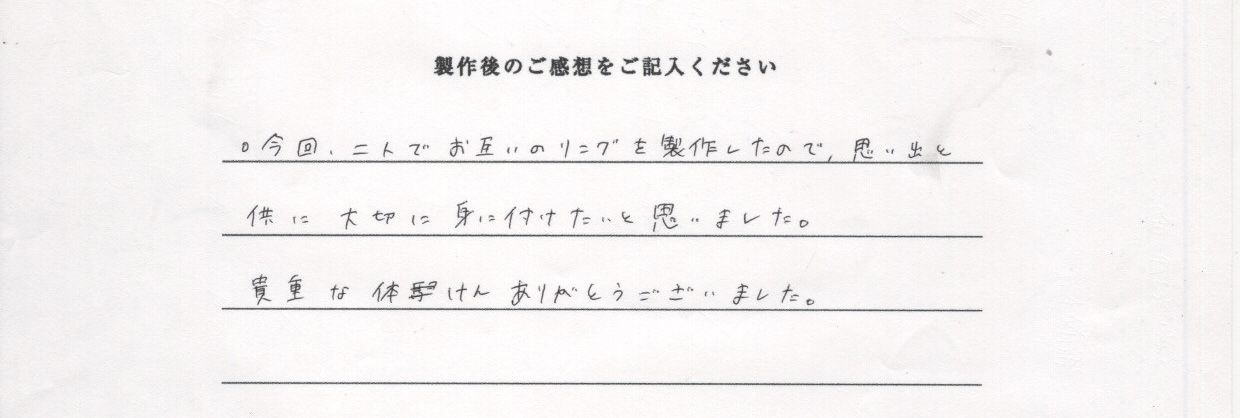 製作後のご感想をご記入ください
○今回、二人でお互いのリングを製作したので、思い出と
供に大切に身に付けたいと思いました。
貴重な体けんありがとうございました。